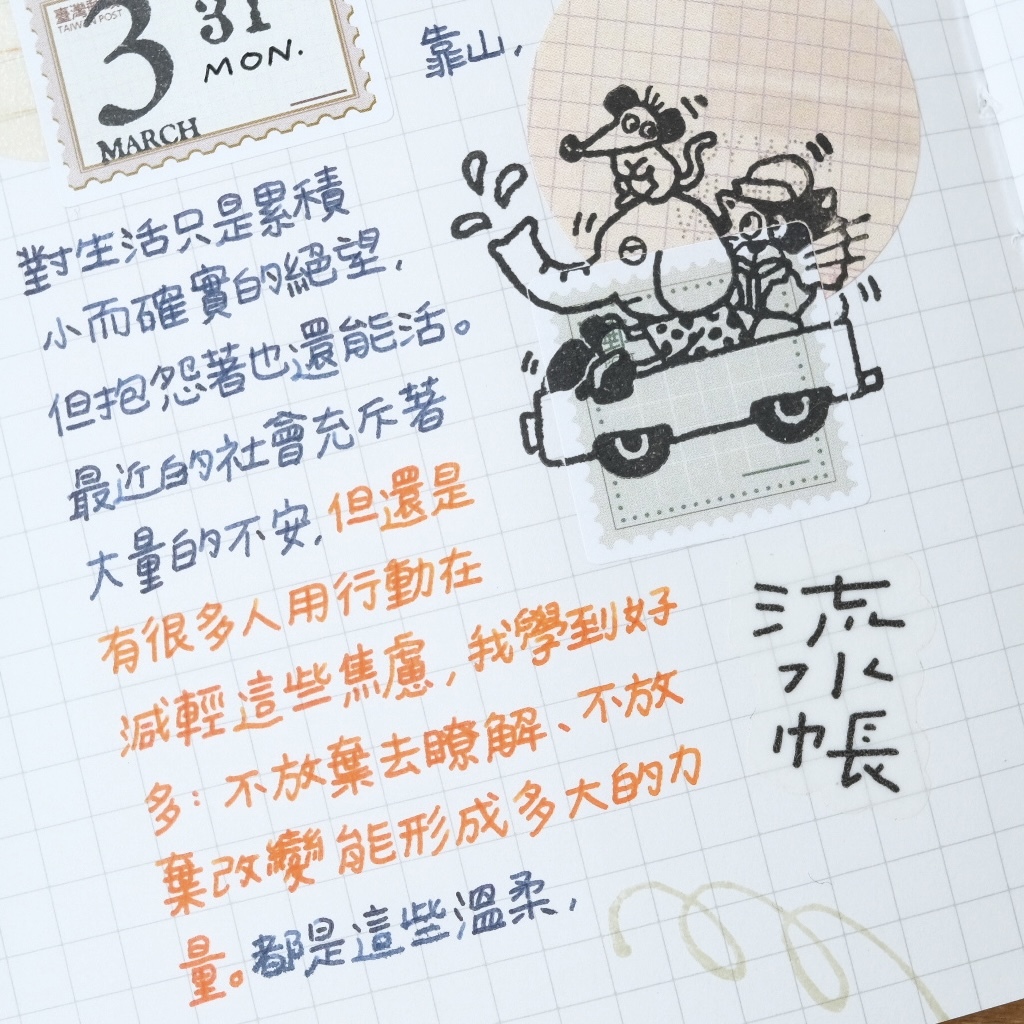 臺灣郵票
TAIWAN POST
3
31
MON.
MARCH
靠山,
對生活只是累積
小而確實的絕望,
但抱怨著也還能活。
最近的社會充斥著
大量的不安,但還是
有很多人用行動在
減輕這些焦慮,我學到好
多:不放棄去瞭解、不放
棄改變能形成多大的力
量。都是這些溫柔,
流
水
帳